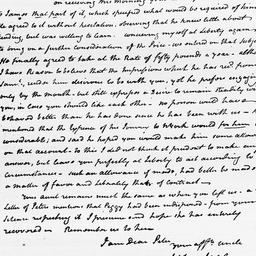 on receiving this morning
to Sam, that part of it, which specified what would be required of him
agreed to it without hesitation, observing that he knew little about
lending, but was willing to learn. conceiving myself at liberty again
to bring on a further consideration of the Price, we entered on that subject
He finally agreed to take at the Rate of fifty pounds a year. altho
I have Reason to believe that the Impressions which he has recd from
Sam, render him desirous to be with you, yet he prefers engaging
only by the month, but still expresses a Desire to remain steadily with
you, in case you should like each other. no person could have
behaved better than he has done since he has been with us. he
mentioned that the expence of his Journey to would be
considerable, and said he hoped you would make him some allowance
on that account. to this I did not think it prudent to make any
answer, but leave you perfectly at liberty to act according to
circumstances. such an allowance, if made, had better be made as
a matter of favor and liberality than of contract.
Your Aunt remains much the same as when you left us. a
Letter of Peter mentions that Peggy had been indisposed. from your
Silence respecting it I presume and hope she has entirely
recovered. Remember us to her
I am Dear Peter
your affte uncle